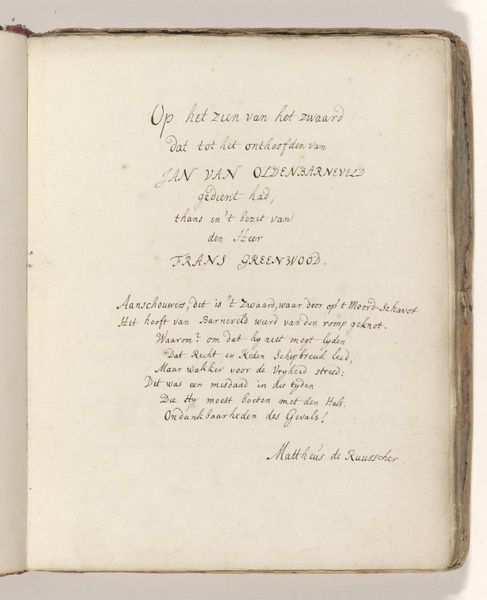 Op het zien van het zwaard
dat tot het onthoofden van
JAN VAN OLDENBARNEVELD
gedient had,
thans in 't bezit van
den Heer
FRANS GREENWOOD.
Aanschouwers, dit is 't Zwaard, waar door op 't Moord-Schavot
Het hooft van Barneveld wurd van den romp geknot.
Waarom? om dat hy niet mogt lyden
Dat Recht en Reden Schipbreuk leed,
Maar wakker voor de Vryheid streed:
Dit was een misdaad in die tyden
Die Hy moest boeten met den Hals.
Ondankbaarheden des Gevals!
Mattheus de Ruusscher